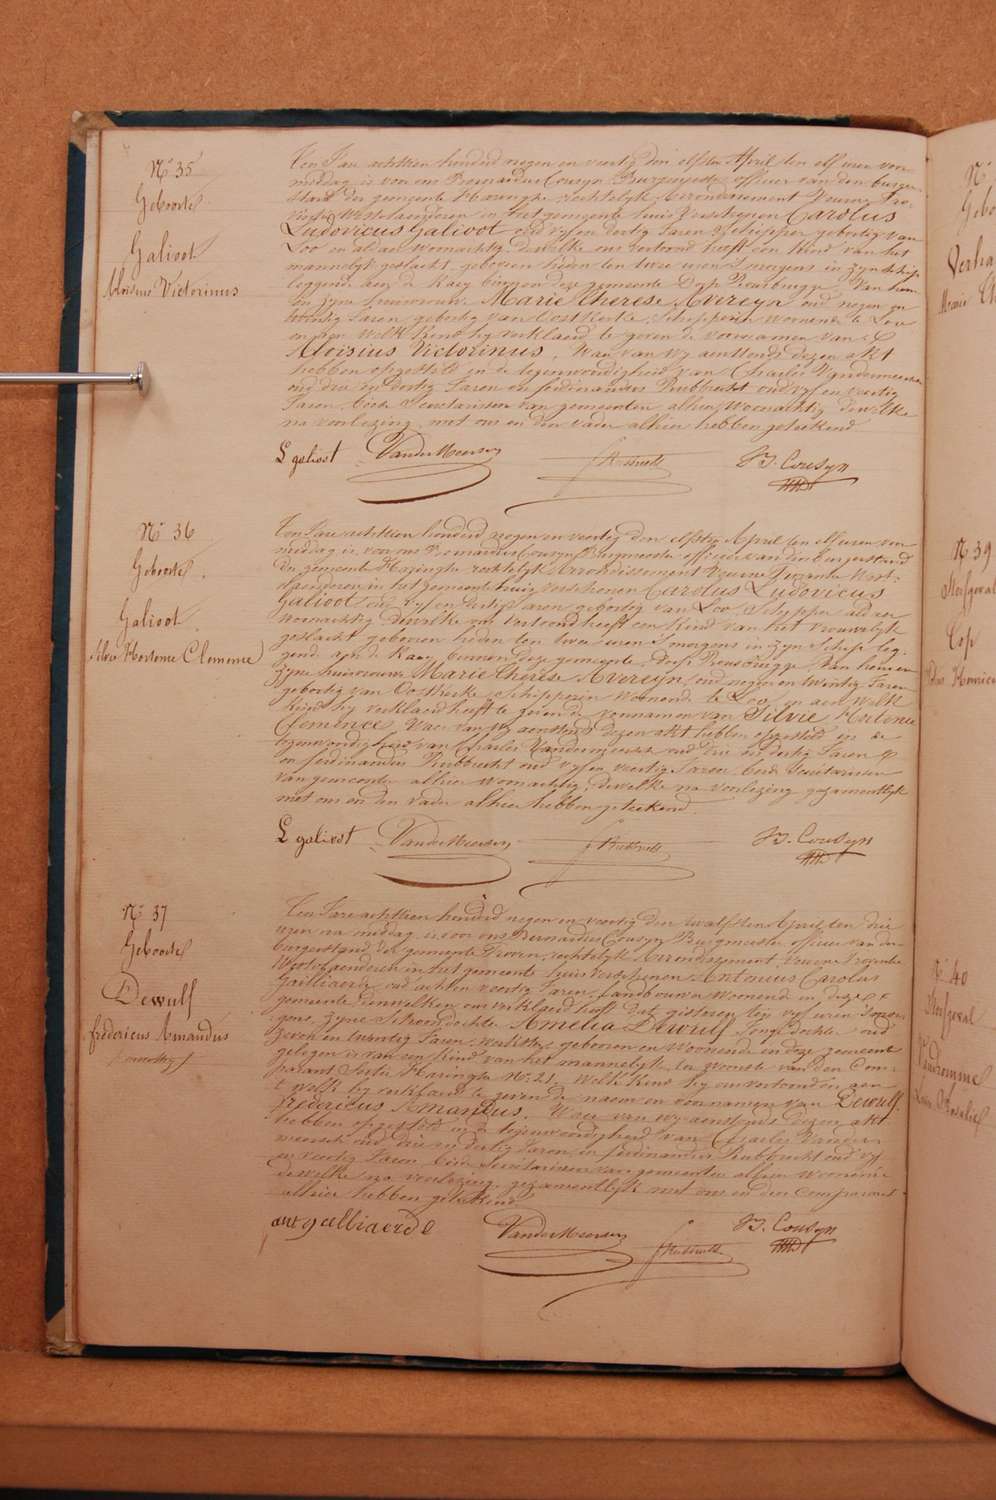 N° 35
Geboorte
Galioot
Aloisius Victorinus
Ten Jare achttien honderd negen en veertig den elfsten April ten elf uren voor
middag is voor ons Bernardus Cousyn Burgmeester officier van den burger
stand der gemeente Haringhe rechterlyk Arrondissement Veurne Pro-
vintie Westvlaenderen in het gemeente huis Verschenen Carolus
Ludovicus Galioot oud vyf en dertig Jaren Schipper gebortig van
Loo en aldaer woonachtig dewelke ons vertoond heeft een Kind van het
mannelyk geslacht geboren heden ten twee uren Smorgens in zyn schip
leggende aen de Kaey binnen deze gemeente Dorp Rousbrugge, Van hem
en zyne huisvrouw Marie Therese Avereyn oud negen en
twintig Jaren gebortig van Oostkerke, Schipperin woonende te Loo
en aen Welk Kind hy verklaerd te geven de voornamen van
Aloisius Victorinus. Waer van wy aenstonds dezen akt
hebben opgesteld in de tegenwoordigheid van Charles Vandermeersch
oud drie en dertig Jaren en ferdinandus Rubbrecht oud vyf en veertig
Jaren, beide Secretarissen van gemeenten alhier Woonachtig dewelke
na voorlezing, met ons en den vader alhier hebben geteekend
L galioot VanderMeersch fRubbrecht B. Cousyn
N° 36
Geboorte
Galioot
Silvie Hortence Clemence
Ten Jare achttien honderd negen en veertig den elfsten April ten elf uren voor
middag is voor ons Bernardus Cousyn Burgmeester officier van den burgerstand
der gemeente Haringhe rechterlyk Arrondissement Veurne Provintie West-
vlaenderen in het gemeente huis verschenen Carolus Ludovicus
Galioot oud vyf en dertig Jaren gebortig van Loo Schipper aldaer
woonachtig Dewelke ons vertoond heeft een Kind van het vrouwelyk
geslacht geboren heden ten twee uren Smorgens in zyn Schip leg-
gende aen de Kaey binnen deze gemeente, dorp Rousbrugge Van hem en
zyne huisvrouw Marie Thérèse Avereyn, oud negen en twintig Jaren
gebortig van Oostkerke Schipperin woonende te Loo, en aen welk
Kind hy verklaerd heeft te geven de voornamen van Silvie Hortence
Clemence. Waer van wy aenstonds dezen akt hebben opgesteld in de
tegenwoordigheid van Charles Vandermeersch oud drie en dertig Jaren
en ferdinandus Rubbrecht oud vyf en veertig Jaren beide Secretarissen
van gemeenten alhier woonachtig, dewelke na voorlezing gezamentlyk
met ons en den vader alhier hebben geteekend.
L galioot VanderMeersch fRubbrecht B. Cousyn
N° 37
Geboorte
Dewulf
fredericus Amandus
Ten Jare achttien honderd negen en veertig den twalfsten April ten drie
uren na middag is voor ons Bernardus Cousyn Burgmeester officier van den
burgerstand der gemeente rechterlyk Arrondissement Veurne Provintie
Westvlaenderen in het gemeente huis verschenen Antonius Carolus
Gailliaerde oud achten veertig Jaren, Landbouwer Woonend in deze
gemeente Denwelken ons verklaerd heeft Dat gisteren ten vyf uren Smor-
gens, zyne Schoondochter Amelia Dewulf Jonge dochter oud
zeven en twintig Jaren, werkster geboren en Woonende in deze gemeente
gelegen is van een Kind van het mannelyk in de woonste van den Com-
parant Sectie Haringhe N° 21. Welke Kind hy ons vertoond en aen
t welk hy verklaerd te geven de naem en voornamen van Dewulf
fredericus Amandus. Waer van wy aenstonds dezen akt
hebben opgesteld in de tegenwoordigheid van Charles Vander-
meersch oud drie en dertig Jaren en ferdinandus Rubbrecht oud vyf
en veertig Jaren beide Secretarissen van gemeenten alhier Woonende
dewelke na voorlezing gezamentlyk met ons en den Comparant
alhier hebben geteekend
ant gailliaerde VanderMeersch fRubbrecht B. Cousyn
N°
Gebo
Verha
Marie
N° 39
Sterfgeval
Cop
N° 40
Sterfgeval
Vandromme
Rosalie